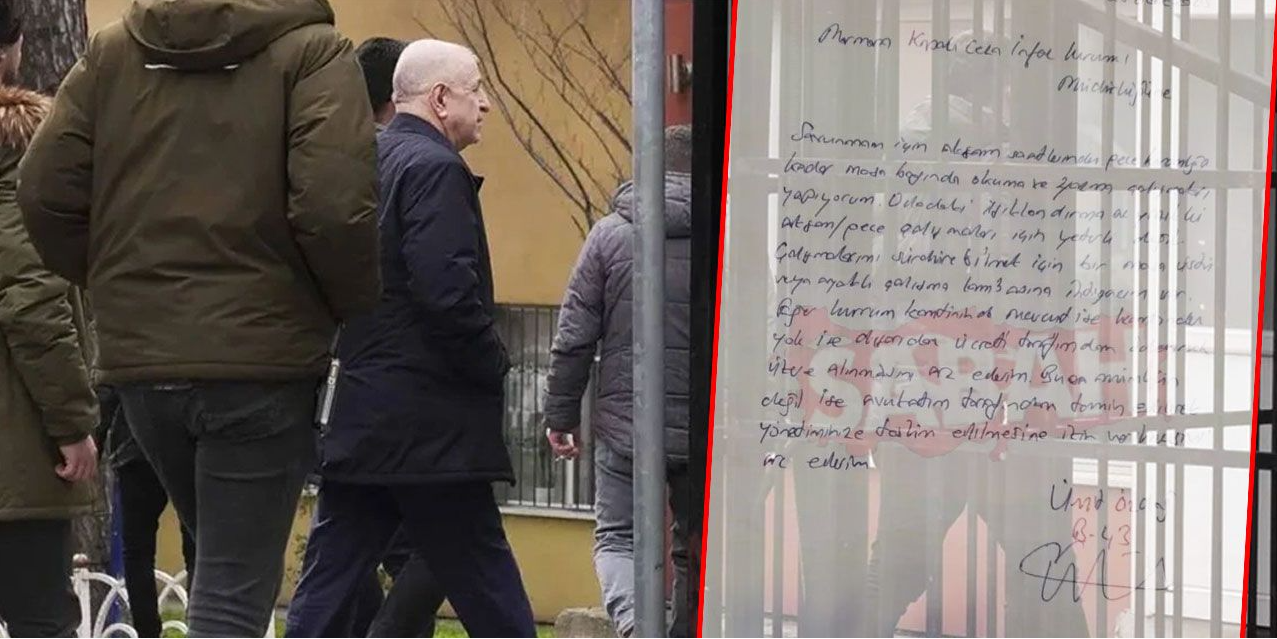 Marmara Kapalı Ceza İnfaz Kurumu
Müdürlüğüne
Savunmam için akşam saatlerinden gece
kadar masa başında okuma ve yazım
yapıyorum. Odadaki ışıklandırma
akşam/gece çalışmaları için yeterli değil.
Çalışmalarımı sürdürebilmek için bir masa üstü
veya ayaklı çalışma lambasına ihtiyacım var.
Eğer kurum mevcud ise
yok ise dışarıdan ücreti tarafımdan
alınmasını arz ederim. Bu da mümkün
değil ise avukatım tarafından temin edilerek
yönetiminize teslim edilmesine izin
arz ederim
Ümit Özdağ
B-43
SABAH